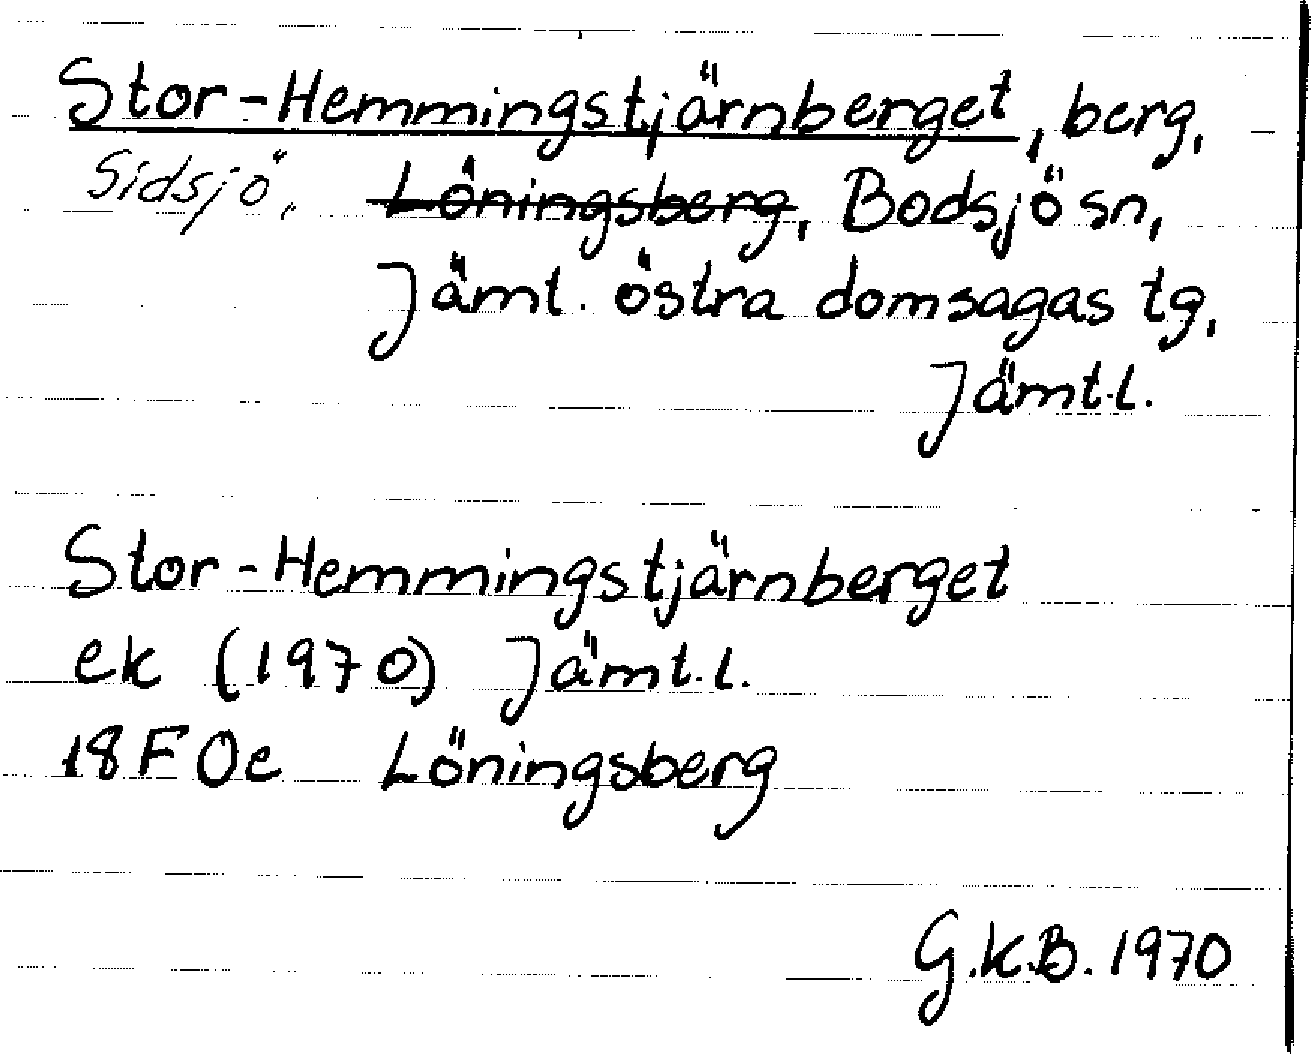 Stor-Hemmingstjärnberget, berg,
Sidsjö, Löningsberg, Bodsjö sn,
Jämt. östra domsagas tg,
Jämt.l.
Stor-Hemmingstjärnberget
ek (1970) Jämt.l.
18F 0e Löningsberg
G.K.B. 1970